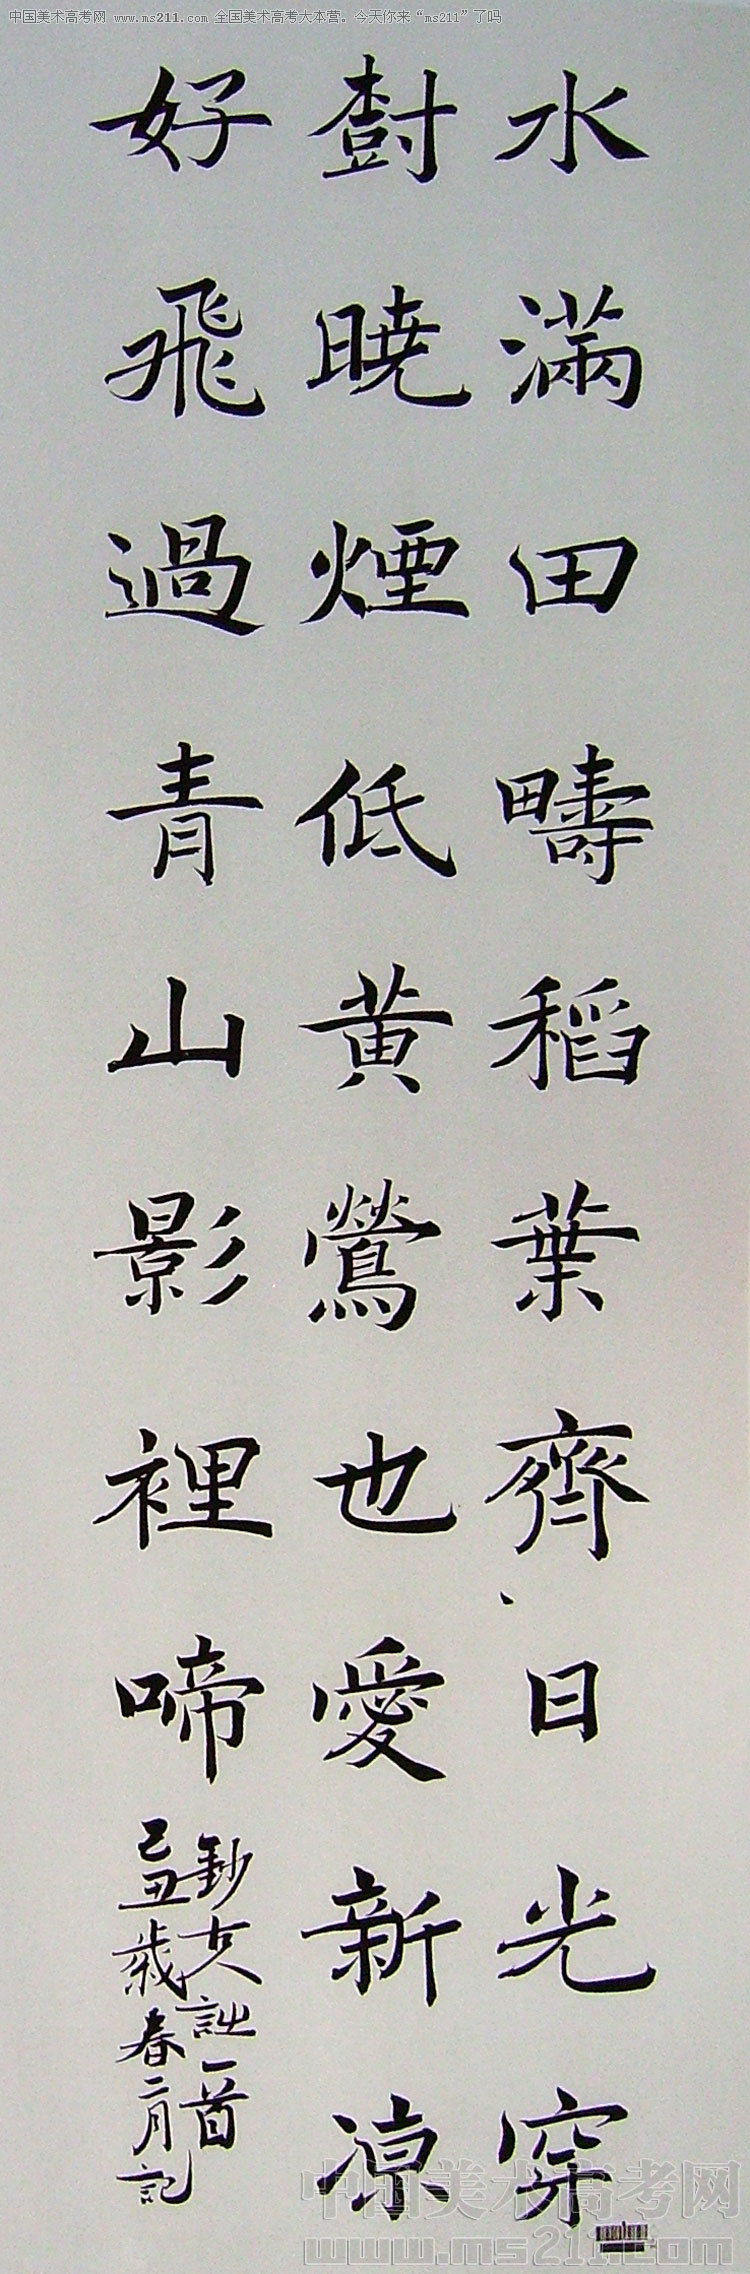 中国美术高考网 www.ms211.com 全国美术高考大本营。今天你来“ms211”了吗
水滿田疇稻葉齊、日光穿
樹曉煙低黄鶯也愛新凉
好飛過青山影裡啼
鈔古人詩一首
己丑歲春二月記
中国美术高考网
www.ms211.com